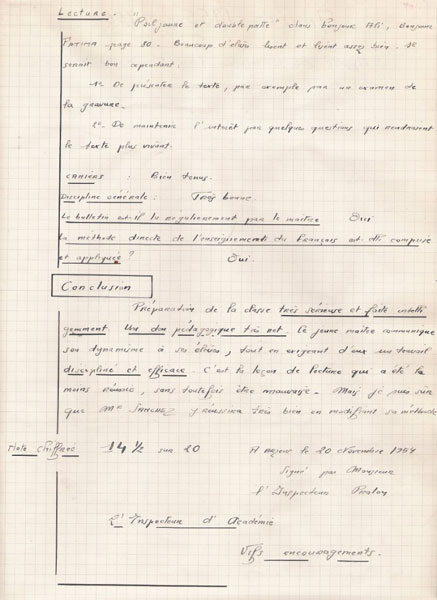 Lecture.
"Poil jaune et double patte" dans bonjour Ali, Bonjour
Fatima page 80. Beaucoup d'élèves lisent et lisent assez bien. Il
serait bon cependant.
1° De présenter le texte, par exemple par un examen de
la gravure.
2° De maintenir l'intérêt par quelques questions qui rendraient
le texte plus vivant.
CAHIERS : Bien tenus.
Discipline générale : Très bonne.
Le bulletin est-il lu régulièrement par le maître Oui
La méthode directe de l'enseignement du Français est-elle comprise
et appliquée ? Oui.
Conclusion
Préparation de la classe très sérieuse et faite intelli
gemment. Un don pédagogique très net. Ce jeune maître communique
son dynamisme à ses élèves, tout en exigeant d'eux un travail
discipliné et efficace. C'est la leçon de lecture qui a été la
moins réussie, sans toutefois être mauvaise. Mais je suis sûr
que Mr SANCHEZ y réussira très bien en modifiant sa méthode
Note Chiffrée 14 1/2 sur 20 A le 20 Novembre 1954
Signé par Monsieur
l'Inspecteur
L'Inspecteur d'Académie
Vifs encouragements.